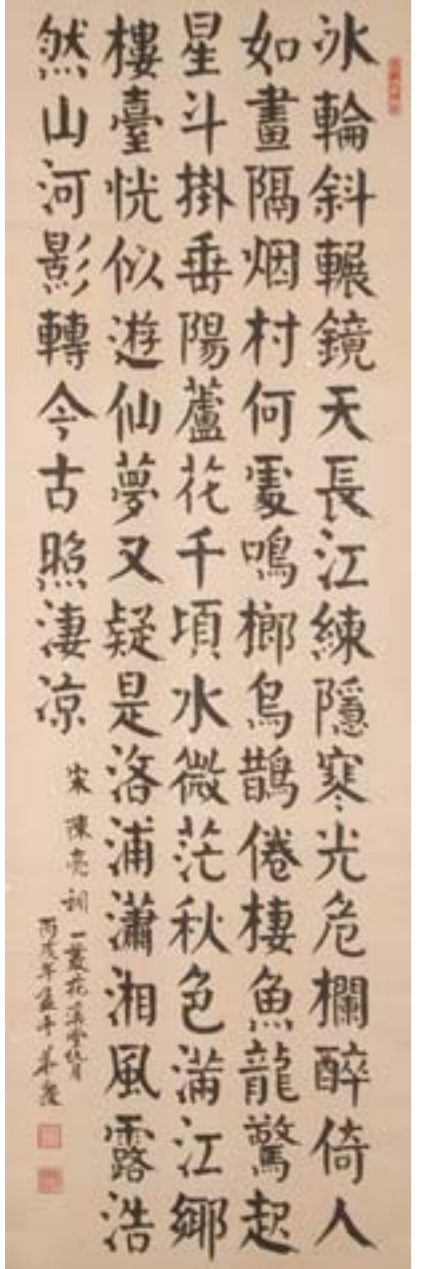 冰輪斜輾鏡天長江練隱寒光危欄醉倚人
如畫隔烟村何處鳴榔烏鵲倦棲魚龍驚起
星斗掛垂陽蘆花千頃水微茫秋色滿江鄉
樓臺恍似遊仙夢又疑是洛浦瀟湘風露浩
然山河影轉今古照淒涼
宋陳亮詞
一叢花溪堂玩月
丙戌年